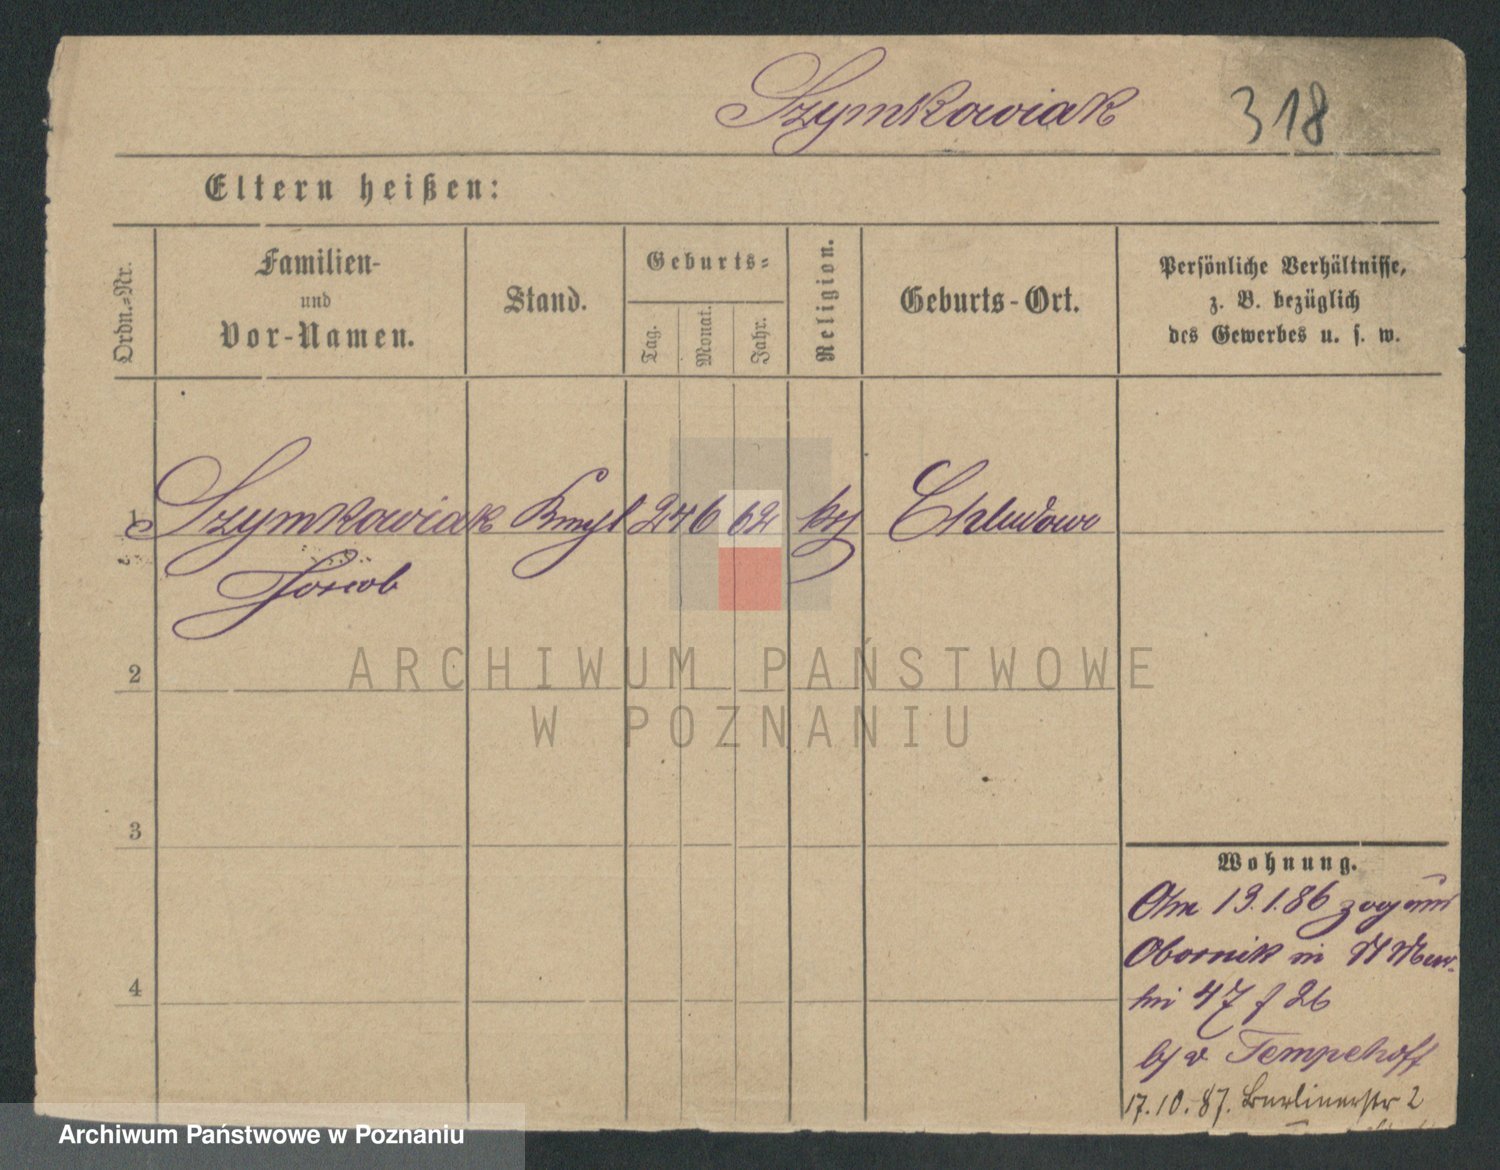 Szymkowiak 318
Eltern heißen:
Ordn.=Nr.
Familien-
und
Vor-Namen.
Stand.
Geburts=
Tag.
Monat.
Jahr.
Religion.
Geburts-Ort.
Persönliche Verhältnisse,
z. B. bezüglich
des Gewerbes u. s. w.
1 Szymkowiak 24 6 62 Chludowo
Jacob
ARCHIWUM PAŃSTWOWE
W POZNANIU
2
3
4
Wohnung.
Am 13.1.86 zog aus
Obornik in
47 f 26
Tempelhoff
17.10.87. Berlinerstr 2
Archiwum Państwowe w Poznaniu